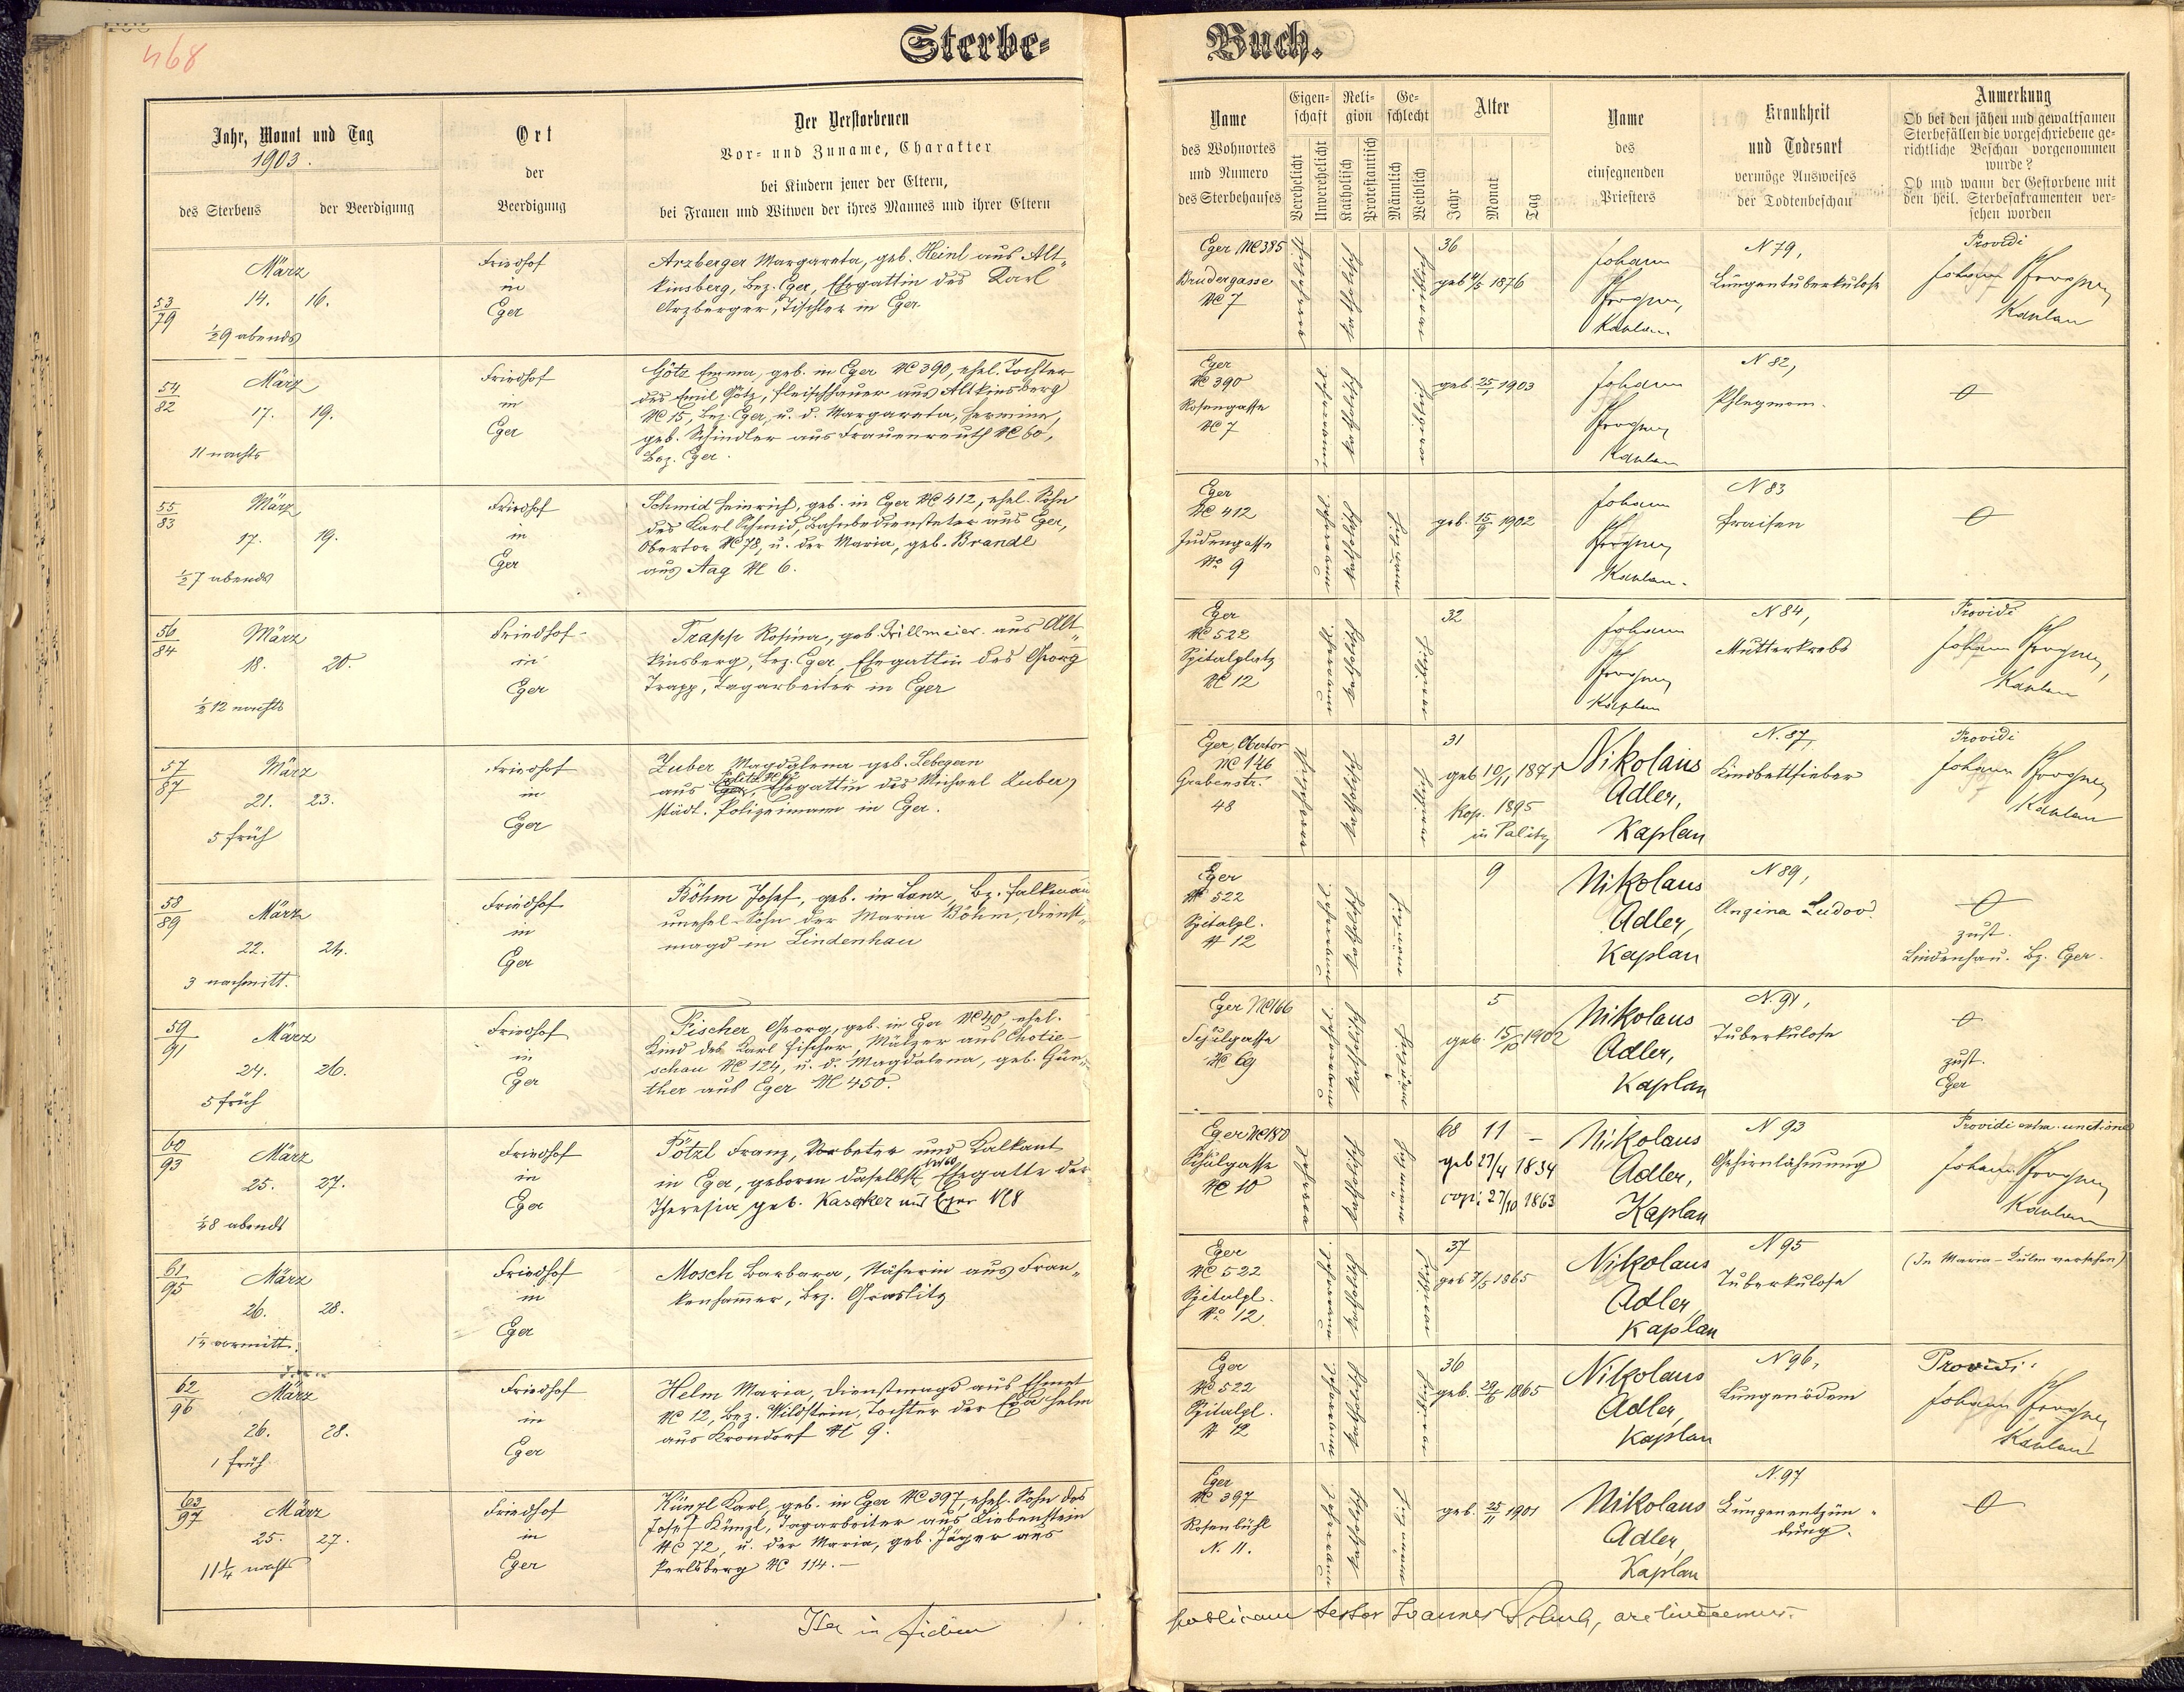 468
Sterbe-
Buch.
Jahr, Monat und Tag
1903.
des Sterbens
der Beerdigung
Ort
der
Beerdigung
Der Verstorbenen
Vor- und Zuname, Charakter
bei Kindern jener der Eltern,
bei Frauen und Witwen der ihres Mannes und ihrer Eltern
Name
des Wohnortes
und Numero
des Sterbehauses
Eigen-
schaft
Verehelicht
Unverehelicht
Reli-
gion
Katholisch
Protestantisch
Ge-
schlecht
Männlich
Weiblich
Alter
Jahr
Monat
Tag
Name
des
einsegnenden
Priesters
Krankheit
und Todesart
vermöge Ausweises
der Todtenbeschau
Anmerkung
Ob bei den jähen und gewaltsamen
Sterbefällen die vorgeschriebene ge-
richtliche Beschau vorgenommen
wurde?
Ob und wann der Gestorbene mit
den heil. Sterbesakramenten ver-
sehen worden
53/79
März
14. 16.
½9 abends
Friedhof
in
Eger
Arzberger Margareta, geb. Heinl aus Alt-
kinsberg, Bez. Eger, Ehegattin des Karl
Arzberger, Tischler in Eger.
Eger NC 385
Brudergasse
NC 7
katholisch
36
geb 4/5 1876
Johann
Kaplan
N 79,
Lungentuberkulose
Providi
Johann
Kaplan
54/82
März
17. 19.
11 nachts
Friedhof
in
Eger
Götz Emma, geb. in Eger NC 390, ehel. Tochter
des Emil Götz, Fleischhauer aus Altkinsberg
NC 15, Bez. Eger, u. d. Margareta, Hermine,
geb. Schindler aus Frauenreuth NC 60,
Bez. Eger.
Eger
NC 390
Rosengasse
NC 7
katholisch
geb. 25/1 1903
Johann
Kaplan
N 82,
Phlegmom.
55/83
März
17. 19.
½7 abends
Friedhof
in
Eger
Schmid Heinrich, geb. in Eger NC 412, ehel. Sohn
des Karl Schmid, Bahnbediensteter aus Eger,
Obertor NC 78, u. der Maria, geb. Brandl
aus Aag NC 6.
Eger
NC 412
Judengasse
No 9
katholisch
geb. 15/9 1902
Johann
Kaplan.
N 83
Fraisen
56/84
März
18. 20.
½12 nachts
Friedhof
in
Eger
Trapp Rosina, geb. Trillmeier aus Alt-
kinsberg, Bez. Eger, Ehegattin des Georg
Trapp, Tagarbeiter in Eger
Eger
NC 522
Spitalplatz
NC 12
katholisch
32
Johann
Kaplan
N 84,
Mutterkrebs
Providi
Johann
Kaplan
57/87
März
21. 23.
5 früh
Friedhof
in
Eger
Zuber Magdalena geb. Lebegern
aus Palitz, Ehegattin des Michael Zuber,
städt. Polizeimann in Eger.
Eger, Obertor
NC 146
Grabenstr.
48
katholisch
31
geb 10/11 1871
Kop. 1895
in Palitz
Nikolaus
Adler,
Kaplan
N. 87,
Kindbettfieber
Providi
Johann
Kaplan
58/89
März
22. 24.
3 nachmitt.
Friedhof
in
Eger
Böhm Josef, geb. in Lanz, Bz. Falkenau
unehel. Sohn der Maria Böhm, Dienst-
magd in Lindenhau
Eger
N 522
Spitalpl.
N 12
katholisch
9
Nikolaus
Adler,
Kaplan
N 89,
Angina Ludov.
zust.
Lindenhau. Bz. Eger.
59/91
März
24. 26.
5 früh
Friedhof
in
Eger
Fischer Georg, geb. in Eger NC 40 ehel.
Kind des Karl Fischer, Mälzer aus Chotie-
schau NC 124, u. d. Magdalena, geb. Gün-
ther aus Eger NC 450.
Eger NC 166
Schulgasse
katholisch
5
geb. 15/10 1902
Nikolaus
Adler,
Kaplan
N. 91,
Tuberkulose
zust.
Eger
60/93
März
25. 27.
Friedhof
in
Eger
Pötzl Franz, Vorbeter und Kalkant
in Eger, geboren daselbst, Ehegatte der
Theresia geb. Kascher aus Eger N 8
Eger NC 180
Schulgasse
NC 10
katholisch
68 11 –
geb 27/4 1834
cop: 27/10 1863
Nikolaus
Adler,
Kaplan
N 93
Gehirnlähmung
Providi extrem. unctione
Johann
Kaplan
61/95
März
26. 28.
Friedhof
in
Eger
Mosch Barbara, Näherin aus Fran-
kenhammer, Bez. Graslitz
Eger
NC 522
Spitalpl.
No 12.
katholisch
37
geb 7/5 1865
Nikolaus
Adler,
Kaplan
N 95
Tuberkulose
(In Maria-Kulm versehen)
62/96
März
26. 28.
1 früh
Friedhof
in
Eger
Helm Maria, Dienstmagd aus Ehmet
NC 12, Bez. Wildstein, Tochter der Eva Helm
aus Krondorf NC 9.
Eger
NC 522
Spitalpl.
N 12
katholisch
36
1865
Nikolaus
Adler,
Kaplan
N 96,
Lungenödem
Providi.
Johann
Kaplan
63/97
März
25. 27.
11¼ nachts
Friedhof
in
Eger
Künzl Karl, geb. in Eger NC 397, ehel. Sohn des
Josef Künzl, Tagarbeiter aus Liebenstein
NC 72, u. der Maria, geb. Jäger aus
Perlsberg NC 114.–
Eger
NC 397
Rosenbühl
N. 11.
katholisch
geb. 25/11 1901
Nikolaus
Adler,
Kaplan
N. 97
Lungenentzün-
dung.